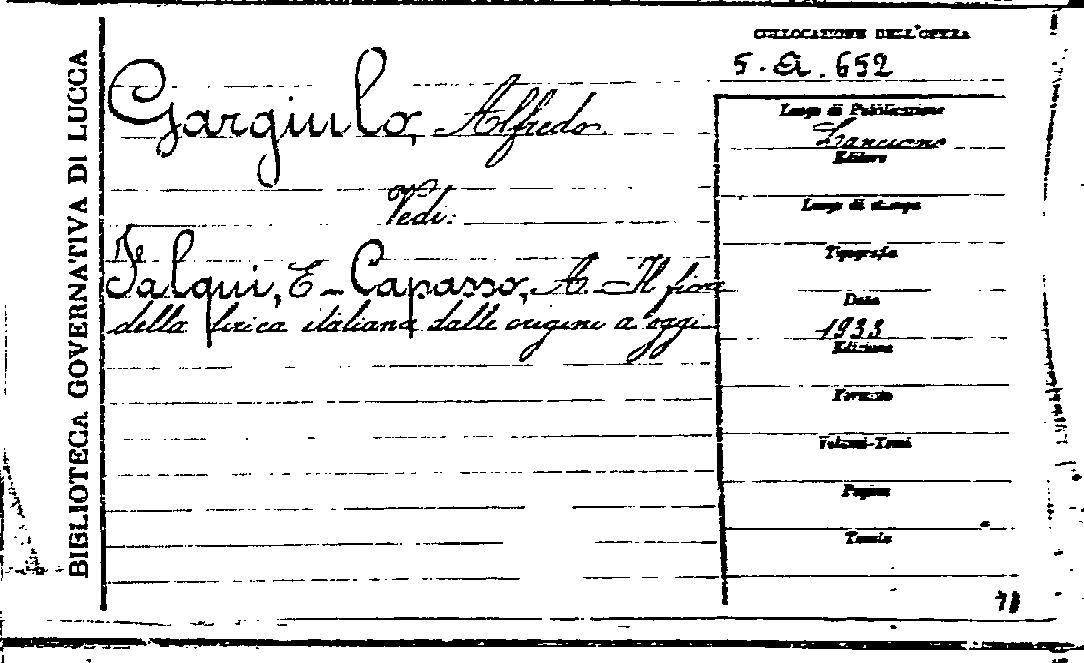 BIBLIOTECA GOVERNATIVA DI LUCCA
COLLOCAZIONE DELL'OPERA
5. A. 652
Gargiulo, Alfredo
Vedi:
Falqui, E - Capasso, A. - Il fiore
della lirica italiana dalle origini a oggi
Luogo di Pubblicazione
Lanciano
Editore
Luogo di stampa
Tipografia
Data
1933
Edizione
Formato
Volumi-Tomi
Pagine
Tavole